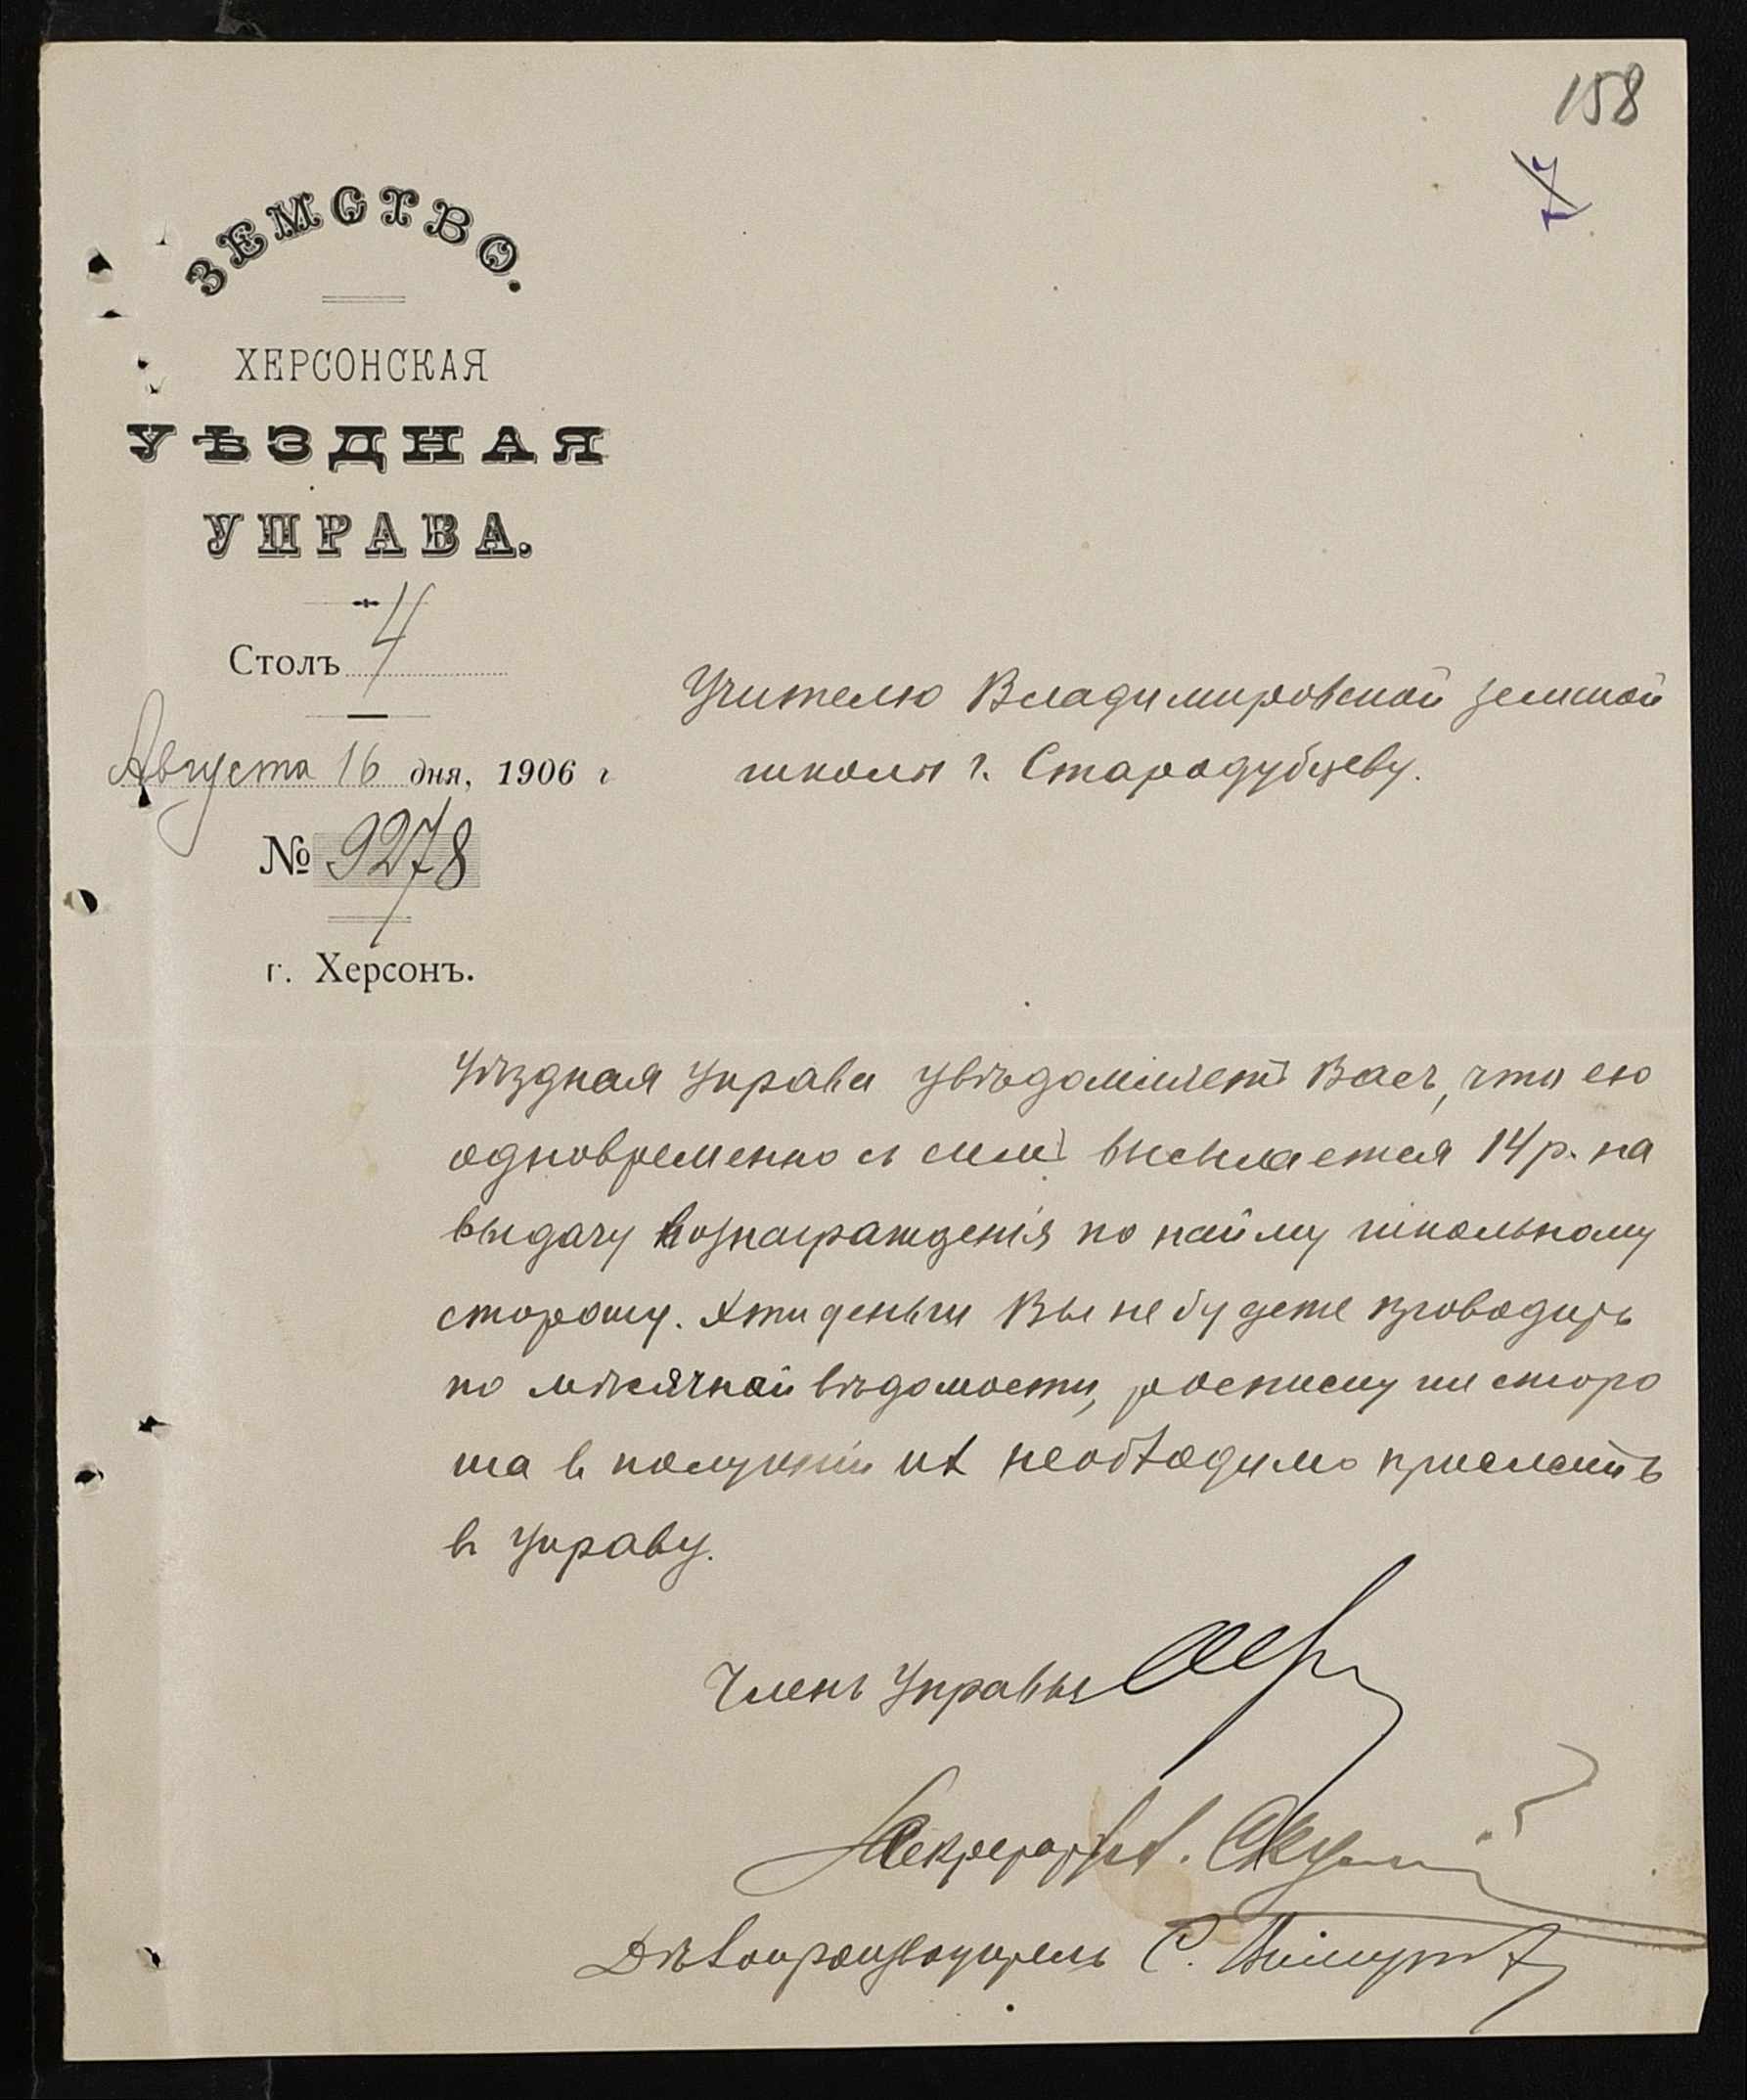 158
7
ЗЕМСТВО.
ХЕРСОНСКАЯ
УѢЗДНАЯ
УПРАВА.
Столъ 4
Августа 16 дня, 1906 г
№ 9278
г. Херсонъ.
Учителю Владимировской земской
школы г. Стародубцеву.
Уѣздная Управа увѣдомляетъ Васъ, что ею
одновременно съ симъ высылается 14 р. на
выдачу вознагражденія по найму школьному
сторожу. Эти деньги Вы не будете проводить
по мѣсячной вѣдомости, росписку же сторо
жа в полученіи их необходимо прислать
въ Управу.
Членъ Управы
Секретарь
Дѣлопроизводитель С.